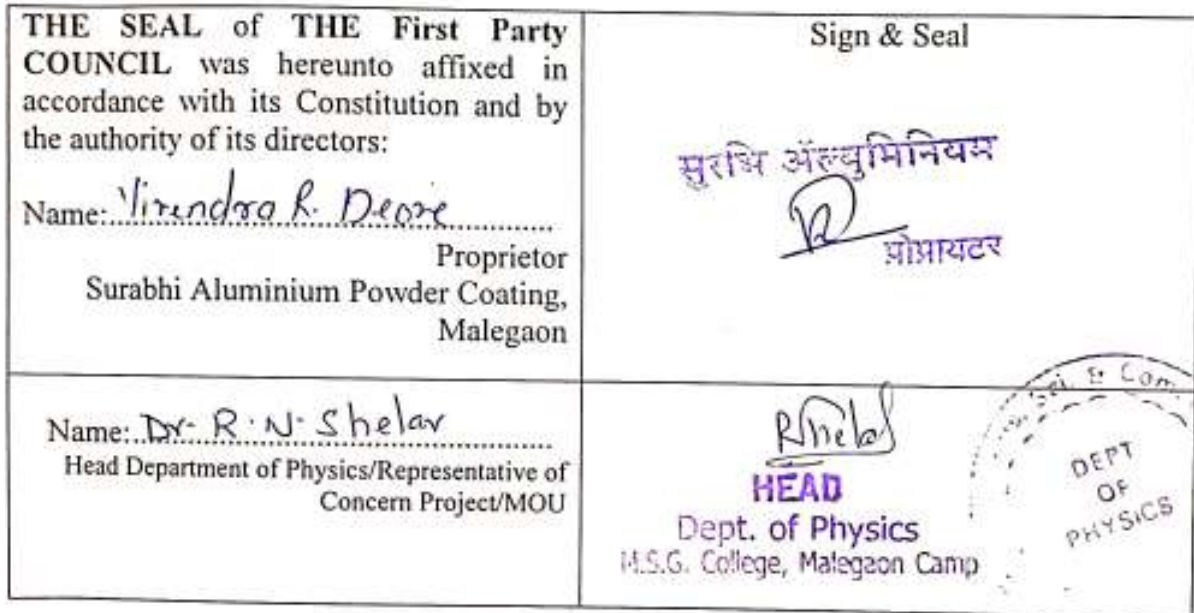 THE SEAL of THE First Party
COUNCIL was hereunto affixed in
accordance with its Constitution and by
the authority of its directors:
Name: Virendra R. Deore
Proprietor
Surabhi Aluminium Powder Coating,
Malegaon
Sign & Seal
सुरभि ॲल्युमिनियम
प्रोप्रायटर
Name: Dr. R. N. Shelar
Head Department of Physics/Representative of
Concern Project/MOU
RShelar
HEAD
Dept. of Physics
M.S.G. College, Malegaon Camp
Sci. & Com.
DEPT
OF
PHYSICS